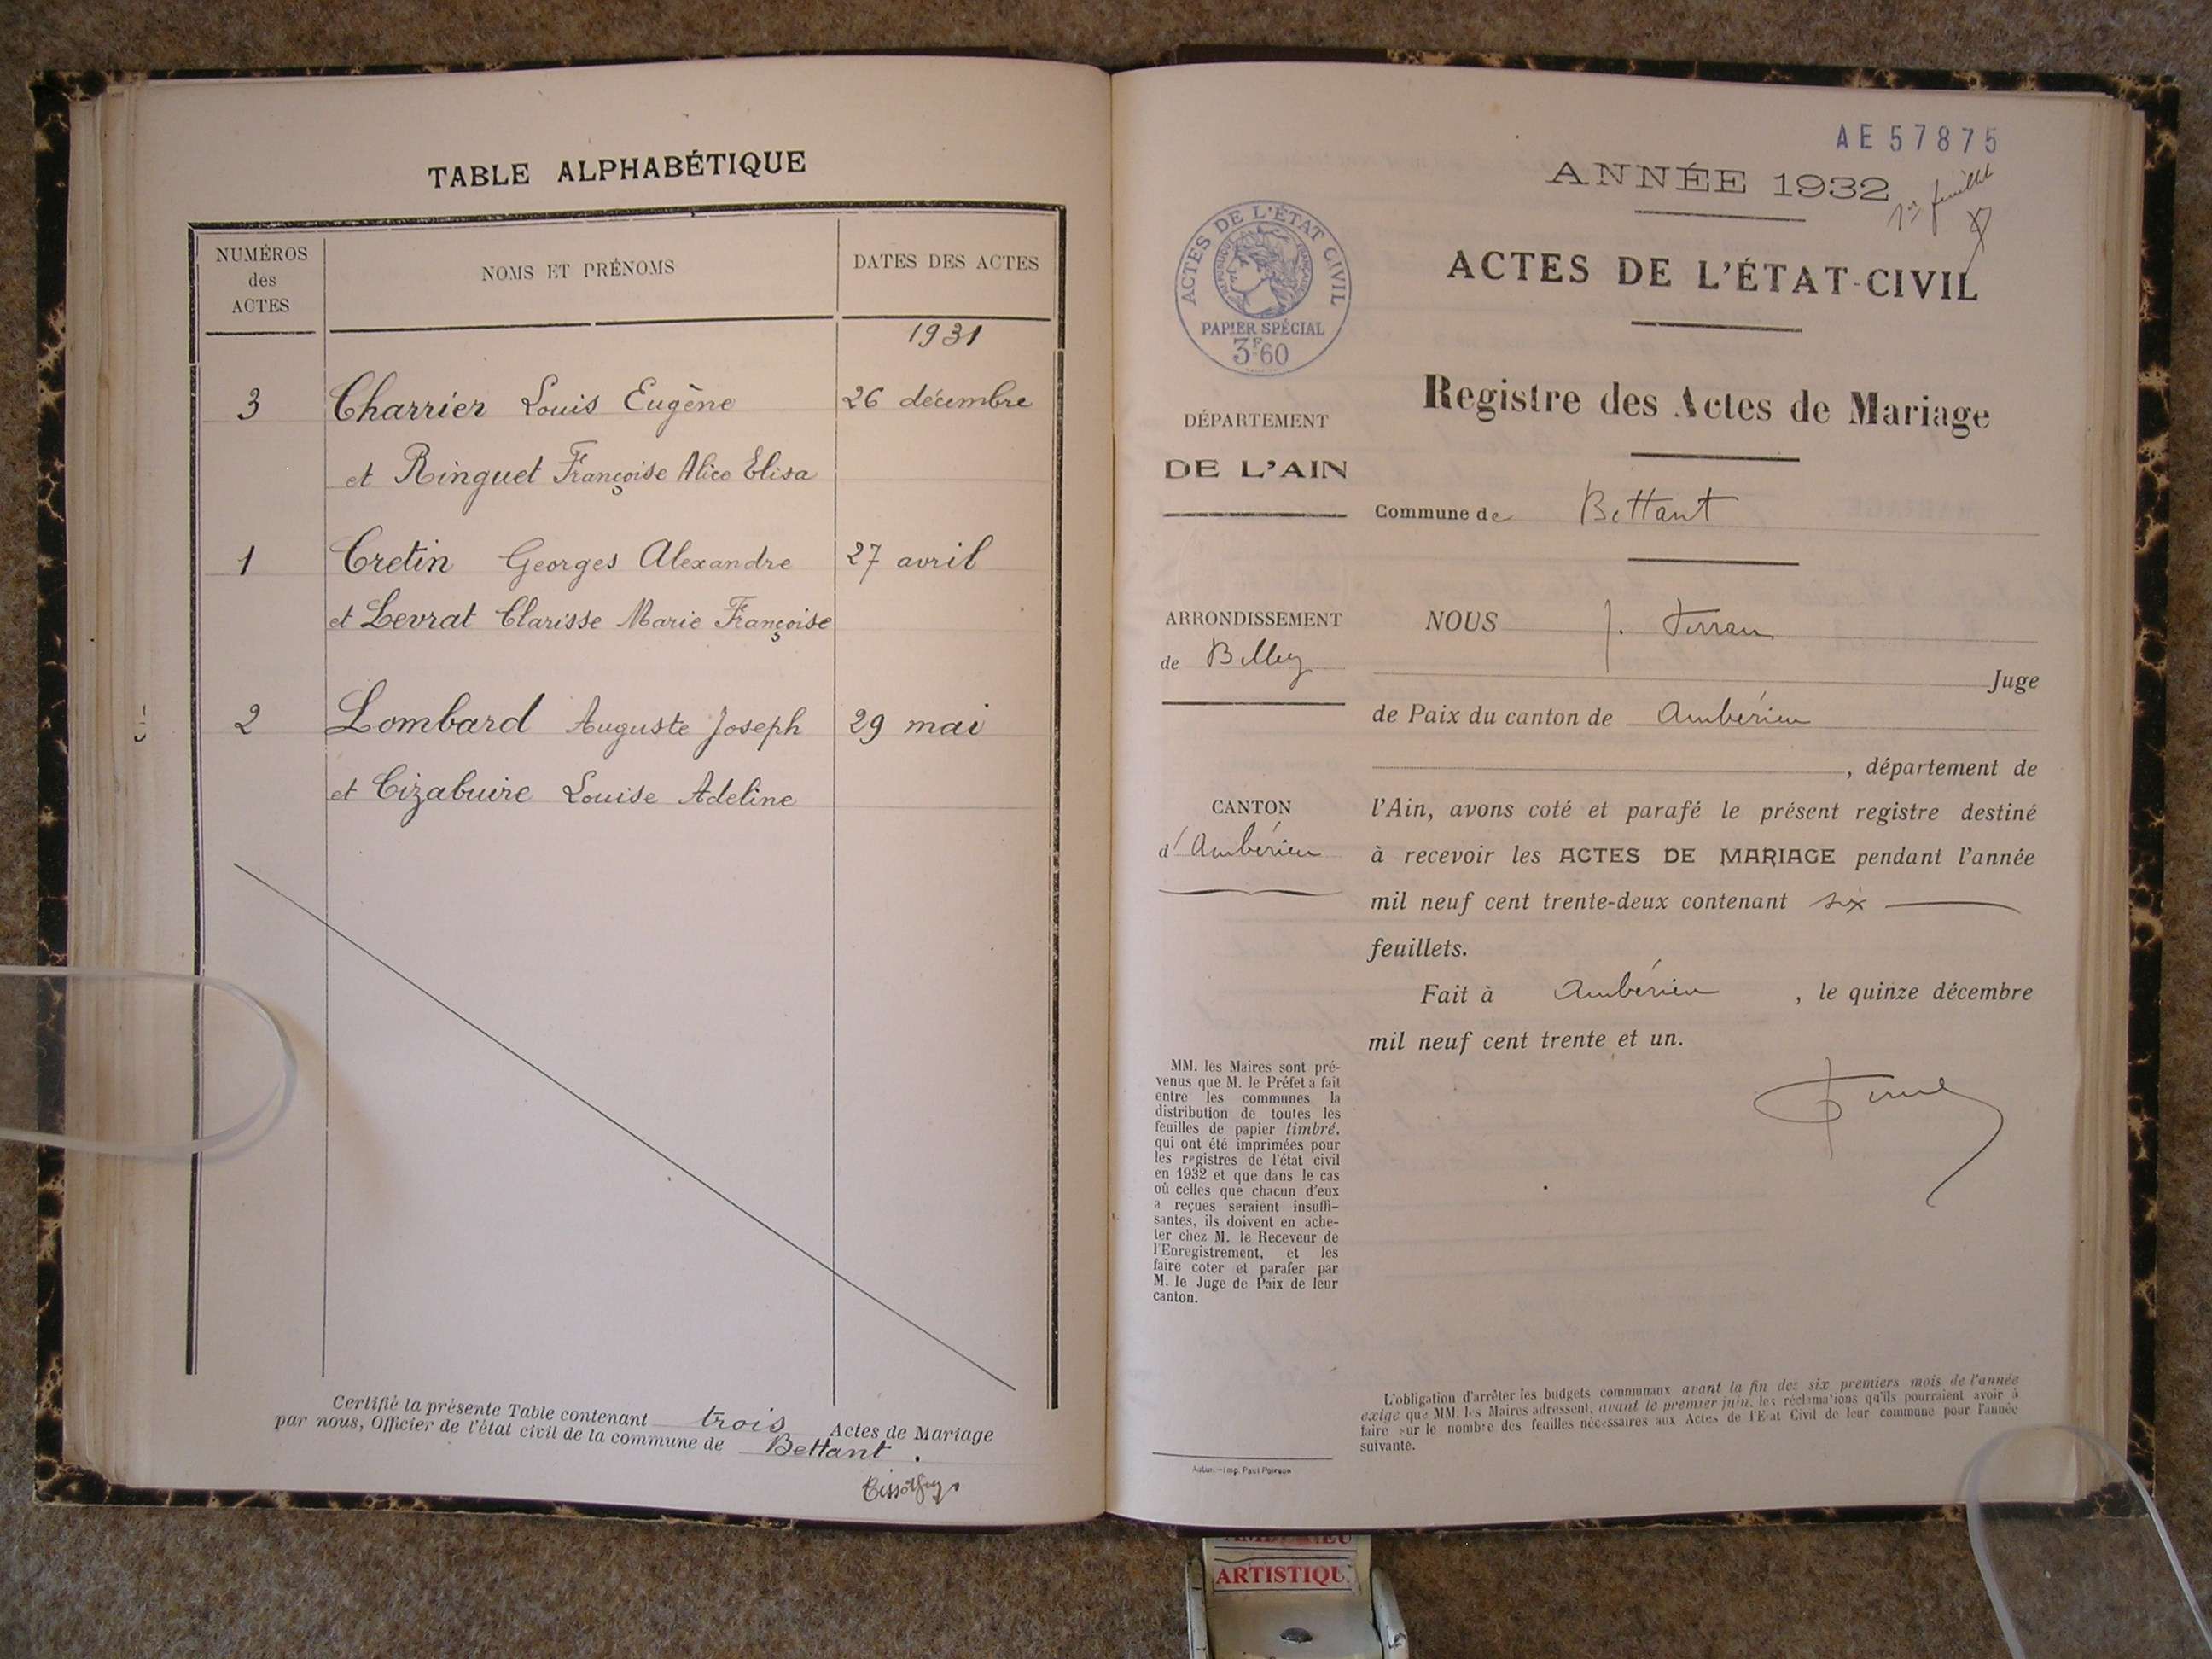 TABLE ALPHABÉTIQUE
NUMÉROS
des
ACTES
NOMS ET PRÉNOMS
DATES DES ACTES
1931
3 Charrier Louis Eugène 26 décembre
et Ringuet Françoise Alice Elisa
1 Cretin Georges Alexandre 27 avril
et Levrat Clarisse Marie Françoise
2 Lombard Auguste Joseph 29 mai
et Cizabuire Louise Adeline
Certifié la présente Table contenant trois Actes de Mariage
par nous, Officier de l'état civil de la commune de Bettant.
AE 57875
ANNÉE 1932
1er feuillet
ACTES DE L'ÉTAT-CIVIL
ACTES DE L'ÉTAT CIVIL
RÉPUBLIQUE FRANÇAISE
PAPIER SPÉCIAL
3F60
Registre des Actes de Mariage
DÉPARTEMENT
DE L'AIN
Commune de Bettant
ARRONDISSEMENT
de Belley
CANTON
d'Ambérieu
NOUS J.
Juge
de Paix du canton de Ambérieu
, département de
l'Ain, avons coté et parafé le présent registre destiné
à recevoir les ACTES DE MARIAGE pendant l'année
mil neuf cent trente-deux contenant six
feuillets.
Fait à Ambérieu , le quinze décembre
mil neuf cent trente et un.
MM. les Maires sont pré-
venus que M. le Préfet a fait
entre les communes la
distribution de toutes les
feuilles de papier timbré,
qui ont été imprimées pour
les registres de l'état civil
en 1932 et que dans le cas
où celles que chacun d'eux
a reçues seraient insuffi-
santes, ils doivent en ache-
ter chez M. le Receveur de
l'Enregistrement, et les
faire coter et parafer par
M. le Juge de Paix de leur
canton.
L'obligation d'arrêter les budgets communaux avant la fin des six premiers mois de l'année
exige que MM. les Maires adressent, avant le premier juin, les réclamations qu'ils pourraient avoir à
faire sur le nombre des feuilles nécessaires aux Actes de l'Etat Civil de leur commune pour l'année
suivante.
Autun.—Imp. Paul Poirson
ARTISTIQU